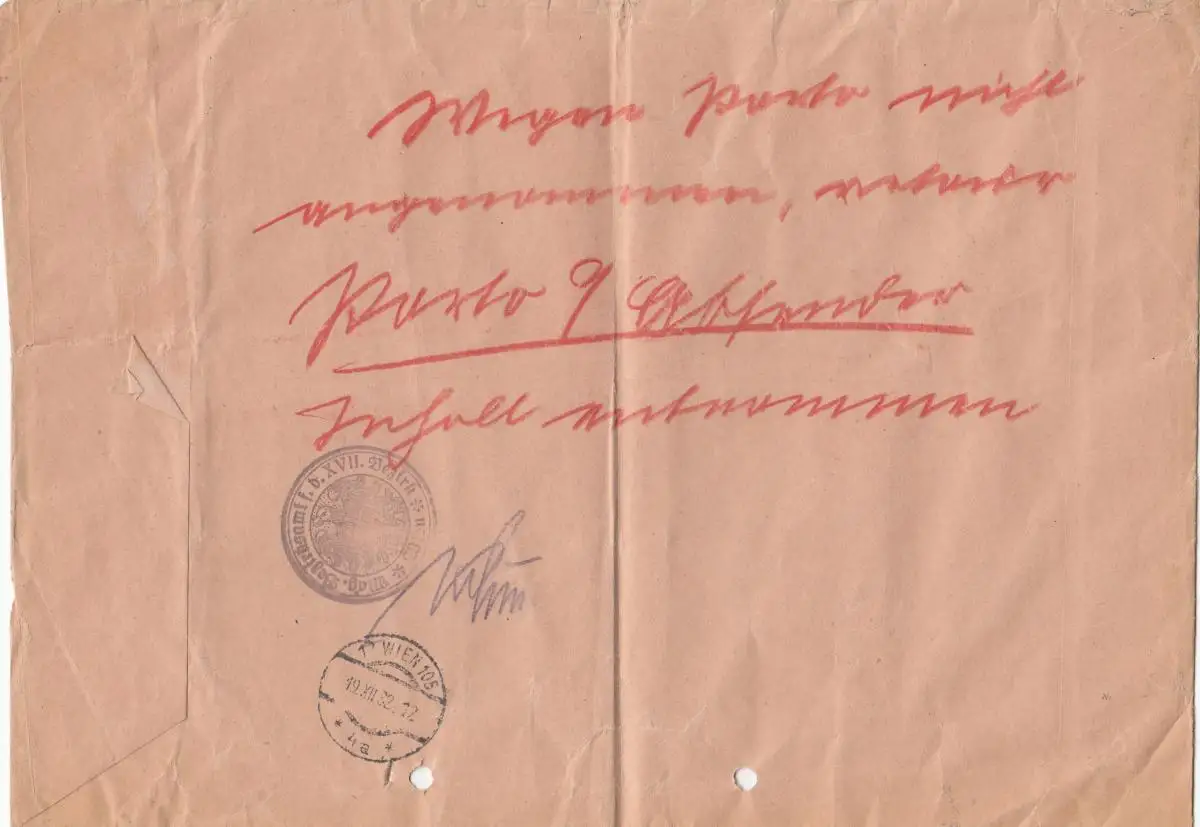 Wegen Porto nicht
angenommen, retour
Porto 9 Absender
Inhalt entnommen
Mag. Bezirksamt f. d. XVII. Bezirk * W
17 WIEN 105
19.XII.32. 12
* 4a *